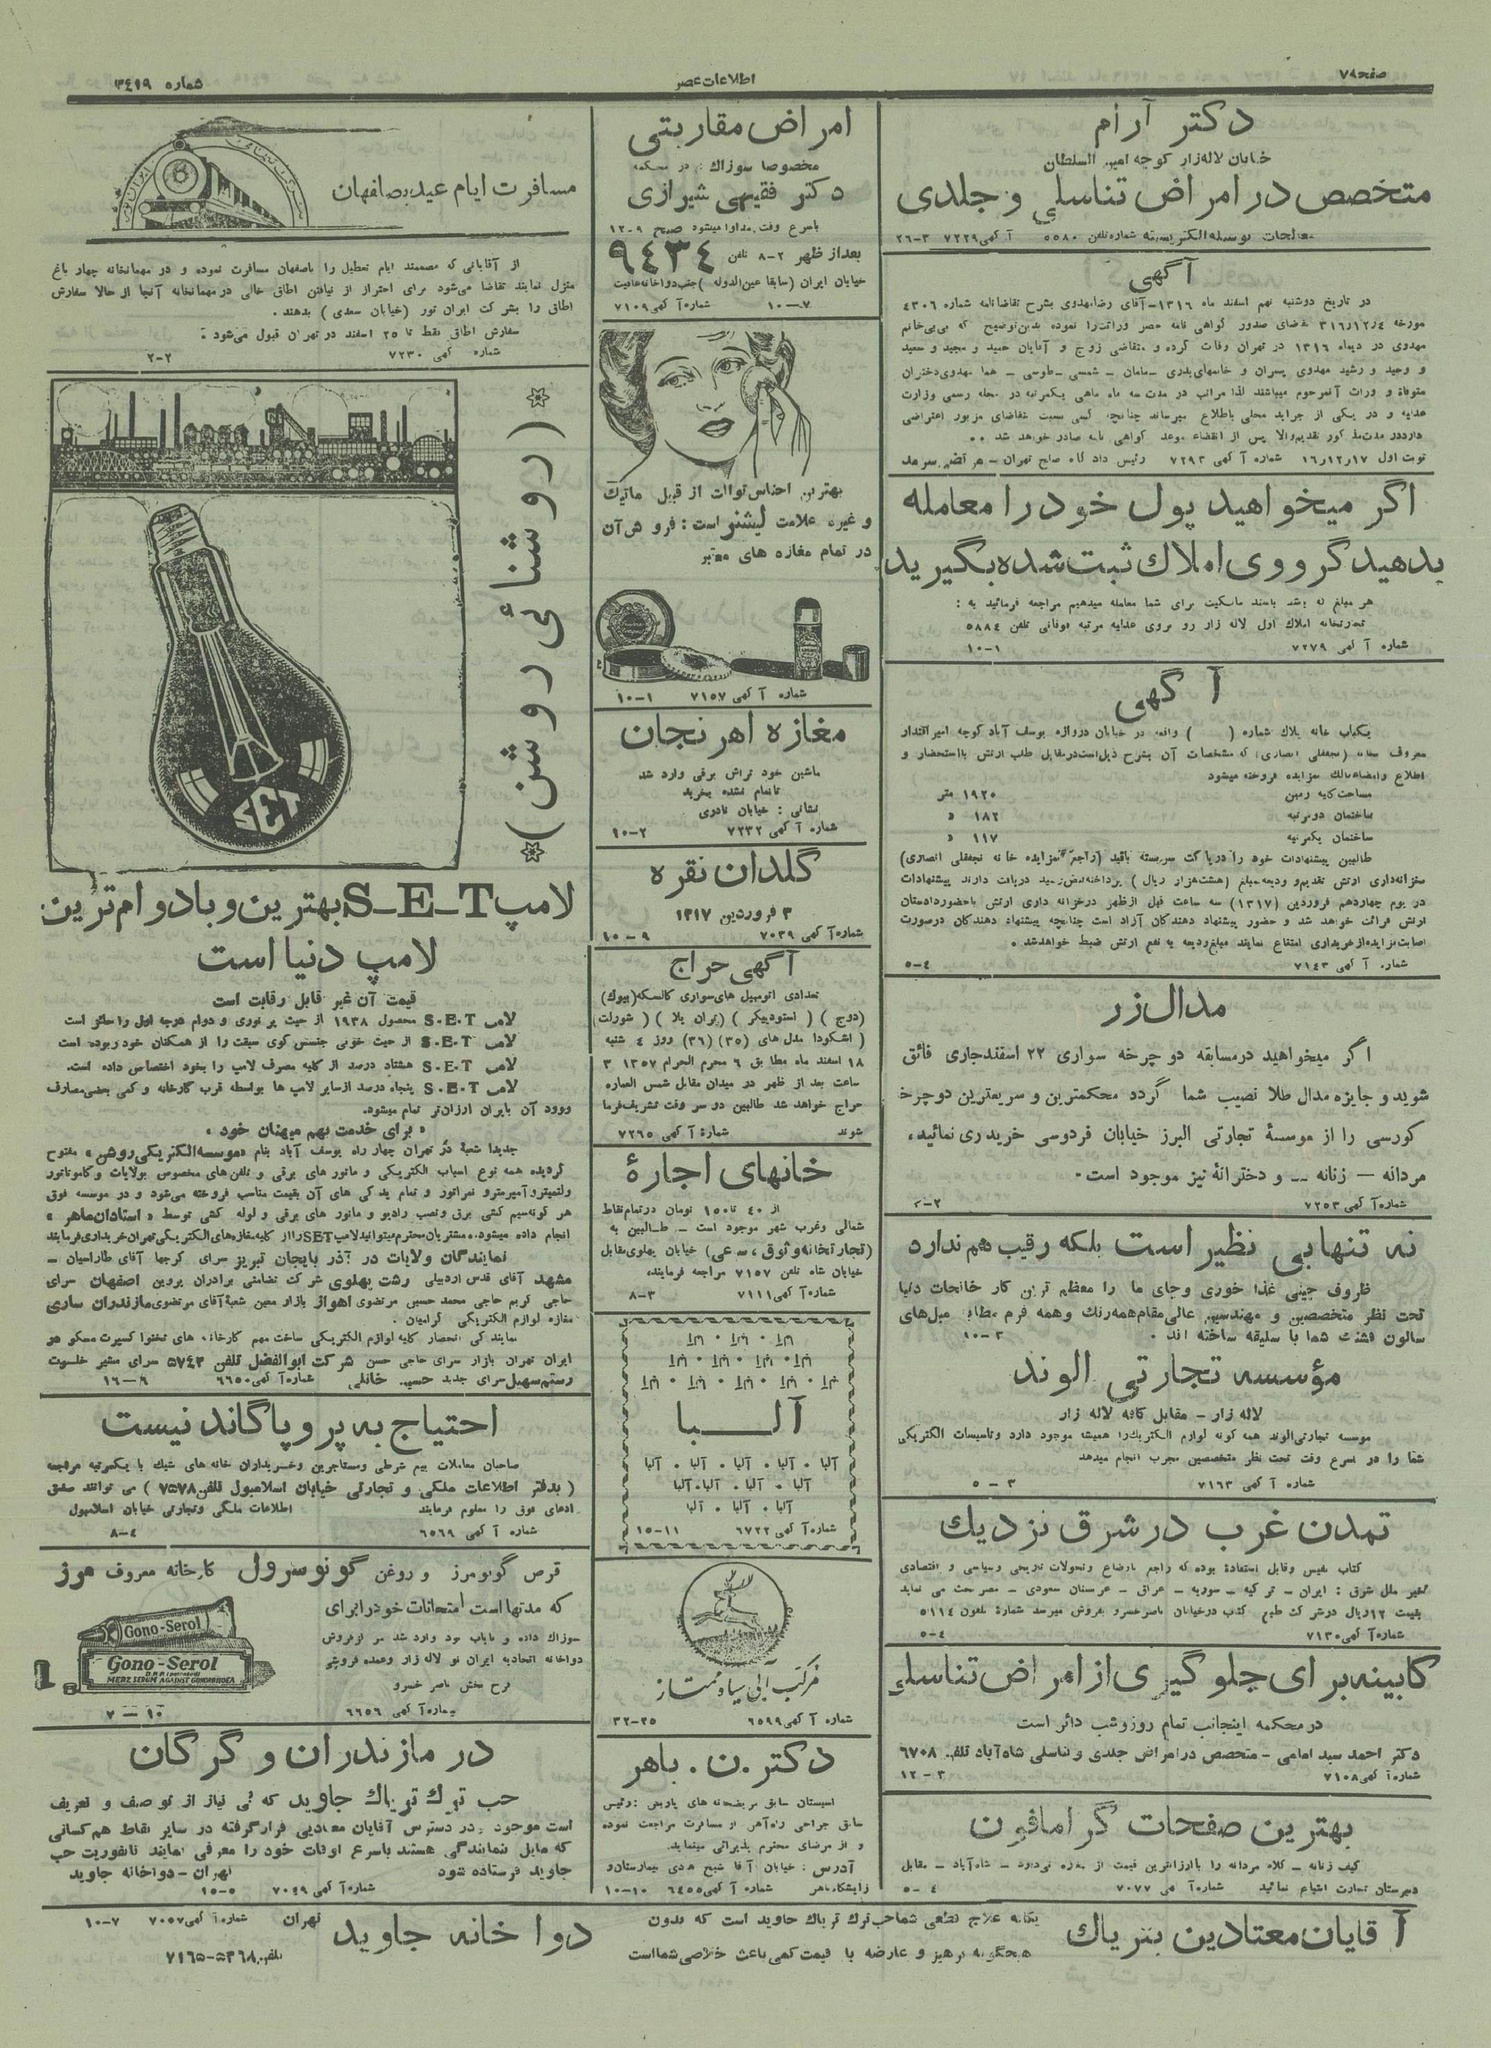 صفحه ۷۸
اطلاعات عصر
شماره ۳٤۱۹
دکتر آرام
خیابان لاله زار کوچه امین السلطان
متخصص در امراض تناسلی و جلدی
معالجات بوسیله الکتریسته شماره تلفن ۵۵۸۰ آگهی ۷۲۲۹ ۳-۲۶
آگهی
در تاریخ دوشنبه نهم اسفند ماه ۱۳۱٦-آقای رضا مهدوی بشرح تقاضانامه شماره ٤۳۰٦
مورخه ۳۱٦٫۱۲٫٤ تقاضای صدور گواهی نامه حصر وراثت را نموده بدین توضیح که بی بی خانم
مهدوی در دیماه ۱۳۱٦ در تهران وفات کرده و متقاضی زوج و آقایان حمید و مجید و سعید
و وحید و رشید مهدوی پسران و خانمهای بدری - مامان - شمسی - طوسی - هما مهدوی دختران
متوفاة و وراث آنمرحوم میباشند لذا مراتب در مدت سه ماه ماهی یکمرتبه در مجله رسمی وزارت
عدلیه و در یکی از جراید محلی باطلاع میرساند چنانچه کسی نسبت بتقاضای مزبور اعتراضی
دارد در مدت مذکور تقدیم والا پس از انقضاء موعد گواهی نامه صادر خواهد شد
نوبت اول ۱۷ر۱۲ر۱٦ شماره آگهی ۷۲۹۳ رئیس دادگاه صلح تهران - مرتضی سرمد
اگر میخواهید پول خود را معامله
بدهید گرو وی املاک ثبت شده بگیرید
هر مبلغ که باشد باسند مالکیت برای شما معامله میدهیم مراجعه فرمائید به :
تجارتخانه املاک اول لاله زار رو بروی عدلیه مرتبه فوقانی تلفن ۵۸۸٤
شماره آگهی ۷۲۷۹ ۱-۱۰
آگهی
یکباب خانه پلاک شماره ( ) واقعه در خیابان دروازه یوسف آباد کوچه امیر اقتدار
معروف بخانه (نجفقلی انصاری) که مشخصات آن بشرح ذیل است در مقابل طلب ارتش بااستحضار و
اطلاع وامضاء مالک بمزایده فروخته میشود
مساحت کلیه زمین ۱۹۲۰ متر
ساختمان دو مرتبه ۱۸۲ د
ساختمان یکمرتبه ۱۱۷ د
طالبین پیشنهادات خود را در پاکت سربسته باقید (راجع بمزایده خانه نجفقلی انصاری)
بخزانه داری ارتش تقدیم و ودیعه مبلغ (هشت هزار ریال) پرداخته قبض رسید دریافت دارند پیشنهادات
در یوم چهاردهم فروردین (۱۳۱۷) سه ساعت قبل از ظهر در خزانه داری ارتش باحضور دادستان
ارتش قرائت خواهد شد و حضور پیشنهاد دهندگان آزاد است چنانچه پیشنهاد دهندگان در صورت
اصابت مزایده از خریداری امتناع نمایند مبلغ ودیعه به نفع ارتش ضبط خواهد شد.
شماره آگهی ۷۱٤۳ ٤-۵
مدال زر
اگر میخواهید در مسابقه دو چرخه سواری ۲۲ اسفند جاری فائق
شوید و جایزه مدال طلا نصیب شما گردد محکمترین و سریعترین دوچرخه
کورسی را از موسسهٔ تجارتی البرز خیابان فردوسی خریداری نمائید،
مردانه - زنانه -- و دخترانهٔ نیز موجود است.
شماره آگهی ۷۲۵۳ ۲-۲
نه تنها بی نظیر است بلکه رقیب هم ندارد
ظروف چینی غذا خوری وچای ما را معظم ترین کار خانجات دنیا
تحت نظر متخصصین و مهندسین عالی مقام همه رنگ وهمه فرم مطابق مبل های
سالون قشنگ شما با سلیقه ساخته اند . ۳-۱۰
مؤسسه تجارتی الوند
لاله زار - مقابل کافه لاله زار
موسسه تجارتی الوند همه گونه لوازم الکتریک را همیشه موجود دارد وتاسیسات الکتریکی
شما را در اسرع وقت تحت نظر متخصصین مجرب انجام میدهد
شماره آگهی ۷۱٦۳ ۳-۵
تمدن غرب در شرق نزدیک
کتاب نفیس وقابل استفادهٔ بوده که راجع باوضاع وتحولات تاریخی وسیاسی و اقتصادی
اخیر ملل شرق : ایران - ترکیه - سوریه - عراق - عربستان سعودی - مصر بحث می نماید
بقیمت ۱۲ ریال در شرکت طبع کتاب در خیابان ناصر خسرو بفروش میرسد شمارهٔ تلفون ۵۱۱٤
شماره آگهی ۷۱۳۰ ٤-۵
کابینه برای جلوگیری از امراض تناسلی
در محکمه اینجانب تمام روز وشب دائر است
دکتر احمد سید امامی - متخصص در امراض جلدی و تناسلی شاه آباد تلفن ٦۷۰۸
شماره آگهی ۷۱۰۸ ۳-۱۲
بهترین صفحات گرامافون
کیف زنانه - کلاه مردانه را باارزانترین قیمت از - شاه آباد - مقابل
دبیرستان تجارت ابتیاع نمائید شماره آگهی ۷۰۷۷ ٤-۵
امراض مقاربتی
مخصوصا سوزاک : در محکمه
دکتر فقیهی شیرازی
باسرع وقت مداوا میشود صبح ۹-۱۲
بعد از ظهر ۲-۸ تلفن ۹٤۳٤
خیابان ایران (سابقا عین الدوله) جنب دواخانه عافیت
۷-۱۰ شماره آگهی ۷۱۰۹
بهترین اجناس توالت از قبیل ماتیک
و غیره علامت لیشنر است : فروش آن
در تمام مغازه های معتبر
شماره آگهی ۷۱۵۷ ۱-۱۰
مغازه اهرنجان
ماشین خود تراش برقی وارد شد
تاتمام نشده بخرید
نشانی : خیابان نادری
شماره آگهی ۷۲۳۲ ۲-۱۰
گلدان نقره
۳ فروردین ۱۳۱۷
شماره آگهی ۷۰۳۹ ۹-۱۰
آگهی حراج
تعدادی اتومبیل های سواری کالسکه (بیوک)
(دوج) (استودبیکر) (تران پلا) (شورلت)
(اشکودا مدل های (۳۵) (۳٦) روز ٤ شنبه
۱۸ اسفند ماه مطابق ٦ محرم الحرام ۱۳۵۷ ۳
ساعت بعد از ظهر در میدان مقابل شمس العماره
حراج خواهد شد طالبین دو سر وقت تشریف فرما
شوند شمارهٔ آگهی ۷۲٦۵
خانهای اجارهٔ
از ٤۰ تا ۱۵۰ تومان در تمام نقاط
شمالی وغرب شهر موجود است - طالبین به
(تجارتخانه وثوق، سعی) خیابان پهلوی مقابل
خیابان شاه تلفن ۷۱۵۷ مراجعه فرمایند،
شماره آگهی ۷۱۱۱ ۳-۸
آلبا
آلبا . آلبا . آلبا . آلبا . آلبا
آلبا . آلبا . آلبا . آلبا
آلبا . آلبا . آلبا
شماره آگهی ٦۷۲۲ ۱۱-۱۵
مرکب آبی سیاه ممتاز
شماره آگهی ٦۵۹۹ ۲۵-۳۲
دکتر . ن . باهر
اسیستان سابق مریضخانه های پاریس : رئیس
سابق جراحی راه آهن از مسافرت مراجعت نموده
و از مرضای محترم پذیرائی مینماید.
آدرس : خیابان آقا شیخ هادی بیمارستان و
زایشگاه باهر شماره آگهی ٦٤۵۵ ۱۰-۱۰
مسافرت ایام عید بصافهان
از آقایانی که مصممند ایام تعطیل را باصفهان مسافرت نموده و در مهمانخانه چهار باغ
منزل نمایند تقاضا می شود برای احتراز از نیافتن اطاق خالی در مهمانخانه آنجا از حالا سفارش
اطاق را بشرکت ایران تور (خیابان سعدی) بدهند.
سفارش اطاق فقط تا ۲۵ اسفند در تهران قبول می شود.
شماره آگهی ۷۲۳۰ ۲-۲
(روشنائی روشن)
SET
لامپ S-E-T بهترین و بادوام ترین
لامپ دنیا است
قیمت آن غیر قابل رقابت است
لامپ S.E.T محصول ۱۹۳۸ از حیث پر نوری و دوام درجه اول را حائز است
لامپ S.E.T از حیث خوبی جنس گوی سبقت را از همگنان خود ربوده است
لامپ S.E.T هشتاد درصد از کلیه مصرف لامپ را بخود اختصاص داده است.
لامپ S.E.T پنجاه درصد از سایر لامپ ها بواسطه قرب کارخانه و کمی بعضی مصارف
ورود آن بایران ارزان تر تمام میشود.
« برای خدمت بهم میهنان خود »
جدیدا شعبهٔ در تهران چهار راه یوسف آباد بنام «موسسه الکتریکی روشن» مفتوح
گردیده همه نوع اسباب الکتریکی و ماتور های برقی و تلفن های مخصوص بولایات و کاموتاتور
ولتمیتر و آمپرمتر و نمراتور و تمام یدکی های آن بقیمت مناسب فروخته می شود و در موسسه فوق
هر گونه سیم کشی برق ونصب رادیو و ماتور های برقی و لوله کشی توسط «استادان ماهر»
انجام داده میشود. مشتریان محترم میتوانید لامپ SET را از کلیه مغازه های الکتریکی تهران خریداری فرمایند
نمایندگان ولایات در آذر بایجان تبریز سرای گرجیها آقای طاراسیان -
مشهد آقای قدس اردبیلی رشت پهلوی شرکت تضامنی برادران پروین اصفهان سرای
حاجی کریم حاجی محمد حسین مرتضوی اهواز بازار معین شعبهٔ آقای مرتضوی مازندران ساری
مغازه لوازم الکتریکی گرامیان.
نمایندگی انحصار کلیه لوازم الکتریکی ساخت مهم کارخانه های تخنوا کسپرت مسکو در
ایران تهران بازار سرای حاجی حسن شرکت ابوالفضل تلفن ۵۷٤۳ سرای مشیر خلوت
رستم سهیل سرای جدید حسین خانلی شماره آگهی ٦٦۵۰ ۹-۱٦
احتیاج به پروپاگاند نیست
صاحبان معاملات بیع شرطی ومستاجرین وخریداران خانه های شیک با یکمرتبه مراجعه
(بدفتر اطلاعات ملکی و تجارتی خیابان اسلامبول تلفن ۷۵۷۸) می توانند صدق
ادعای فوق را معلوم فرمایند اطلاعات ملکی وتجارتی خیابان اسلامبول
شماره آگهی ٦۵٦۹ ٤-۸
قرص گونومرز و روغن گونوسرول کارخانه معروف مرز
که مدتها است امتحانات خود را برای
سوزاک داده و نایاب بود وارد شد مرکز فروش
دواخانه اتحادیه ایران نو لاله زار وعمده فروشی
فرح بخش ناصر خسرو
شماره آگهی ٦٦۵٦ ۱۰-۷
Gono-Serol
Gono-Serol
MERZ SERUM AGAINST GONORRHOEA
در مازندران و گرگان
حب ترک تریاک جاوید که بی نیاز از توصیف و تعریف
است موجود و در دسترس آقایان معتادیی قرار گرفته در سایر نقاط هم کسانی
که مایل بنمایندگی هستند باسرع اوقات خود را معرفی نمایند تا بفوریت حب
جاوید فرستاده شود تهران - دواخانه جاوید
شماره آگهی ۷۰٤۹ ۵-۱۵
آقایان معتادین بتریاک
یگانه علاج قطعی شما حب ترک تریاک جاوید است که بدون
هیچگونه پرهیز و عارضه با قیمت کمی باعث خلاصی شما است
دوا خانه جاوید
تهران شماره آگهی ۷۰۵۷ ۷-۱۰
تلفن ۵۳٦۸-۷۱٦۵